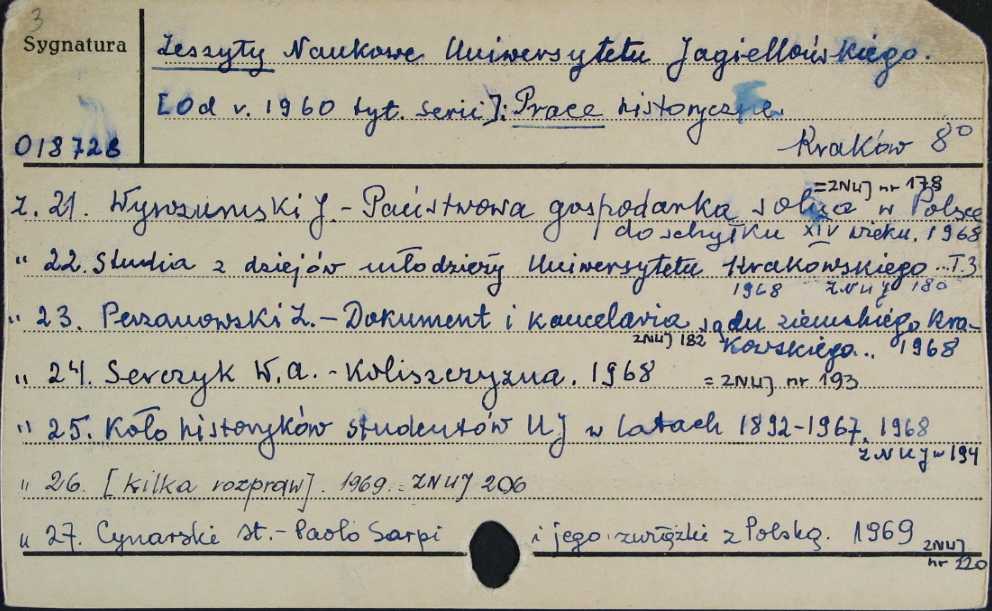 3
Sygnatura
Zeszyty Naukowe Uniwersytetu Jagiellońskiego.
[Od r. 1960 tyt. serii]: Prace historyczne
018728
Kraków 8°
z. 21. Wyrozumski J. - Państwowa gospodarka solna w Polsce
= ZNUJ nr 178
do schyłku XIV wieku. 1968
" 22. Studia z dziejów młodzieży Uniwersytetu Krakowskiego.. T.3
1968 ZNUJ 180
" 23. Perzanowski Z. - Dokument i kancelaria sądu ziemskiego kra-
ZNUJ 182 kowskiego.. 1968
" 24. Serczyk W.A. - Koliszczyzna. 1968 = ZNUJ nr 193
" 25. Koło historyków studentów UJ w latach 1892-1967. 1968
ZNUJ nr 194
" 26. [kilka rozpraw]. 1969. = ZNUJ 206
" 27. Cynarski St. - Paolo Sarpi i jego związki z Polską. 1969 ZNUJ
nr 220